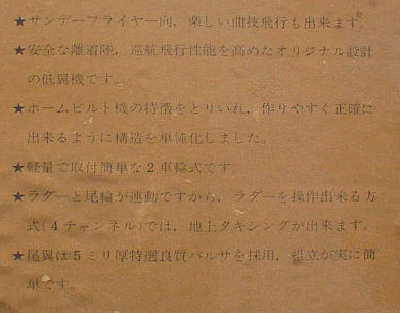 ★サンデーフライヤー向，楽しい曲技飛行も出来ます。
★安全な離着陸，巡航飛行性能を高めたオリジナル設計
の低翼機です。
★ホームビルト機の特徴をとりいれ，作りやすく正確に
出来るように構造を単純化しました。
★軽量で取付簡単な2車輪式です
★ラダーと尾輪が連動ですから，ラダーを操作出来る方
式（4チャンネル）では，地上タキシングが出来ます。
★尾翼は5ミリ厚特選良質バルサを採用，組立が実に簡
単です。